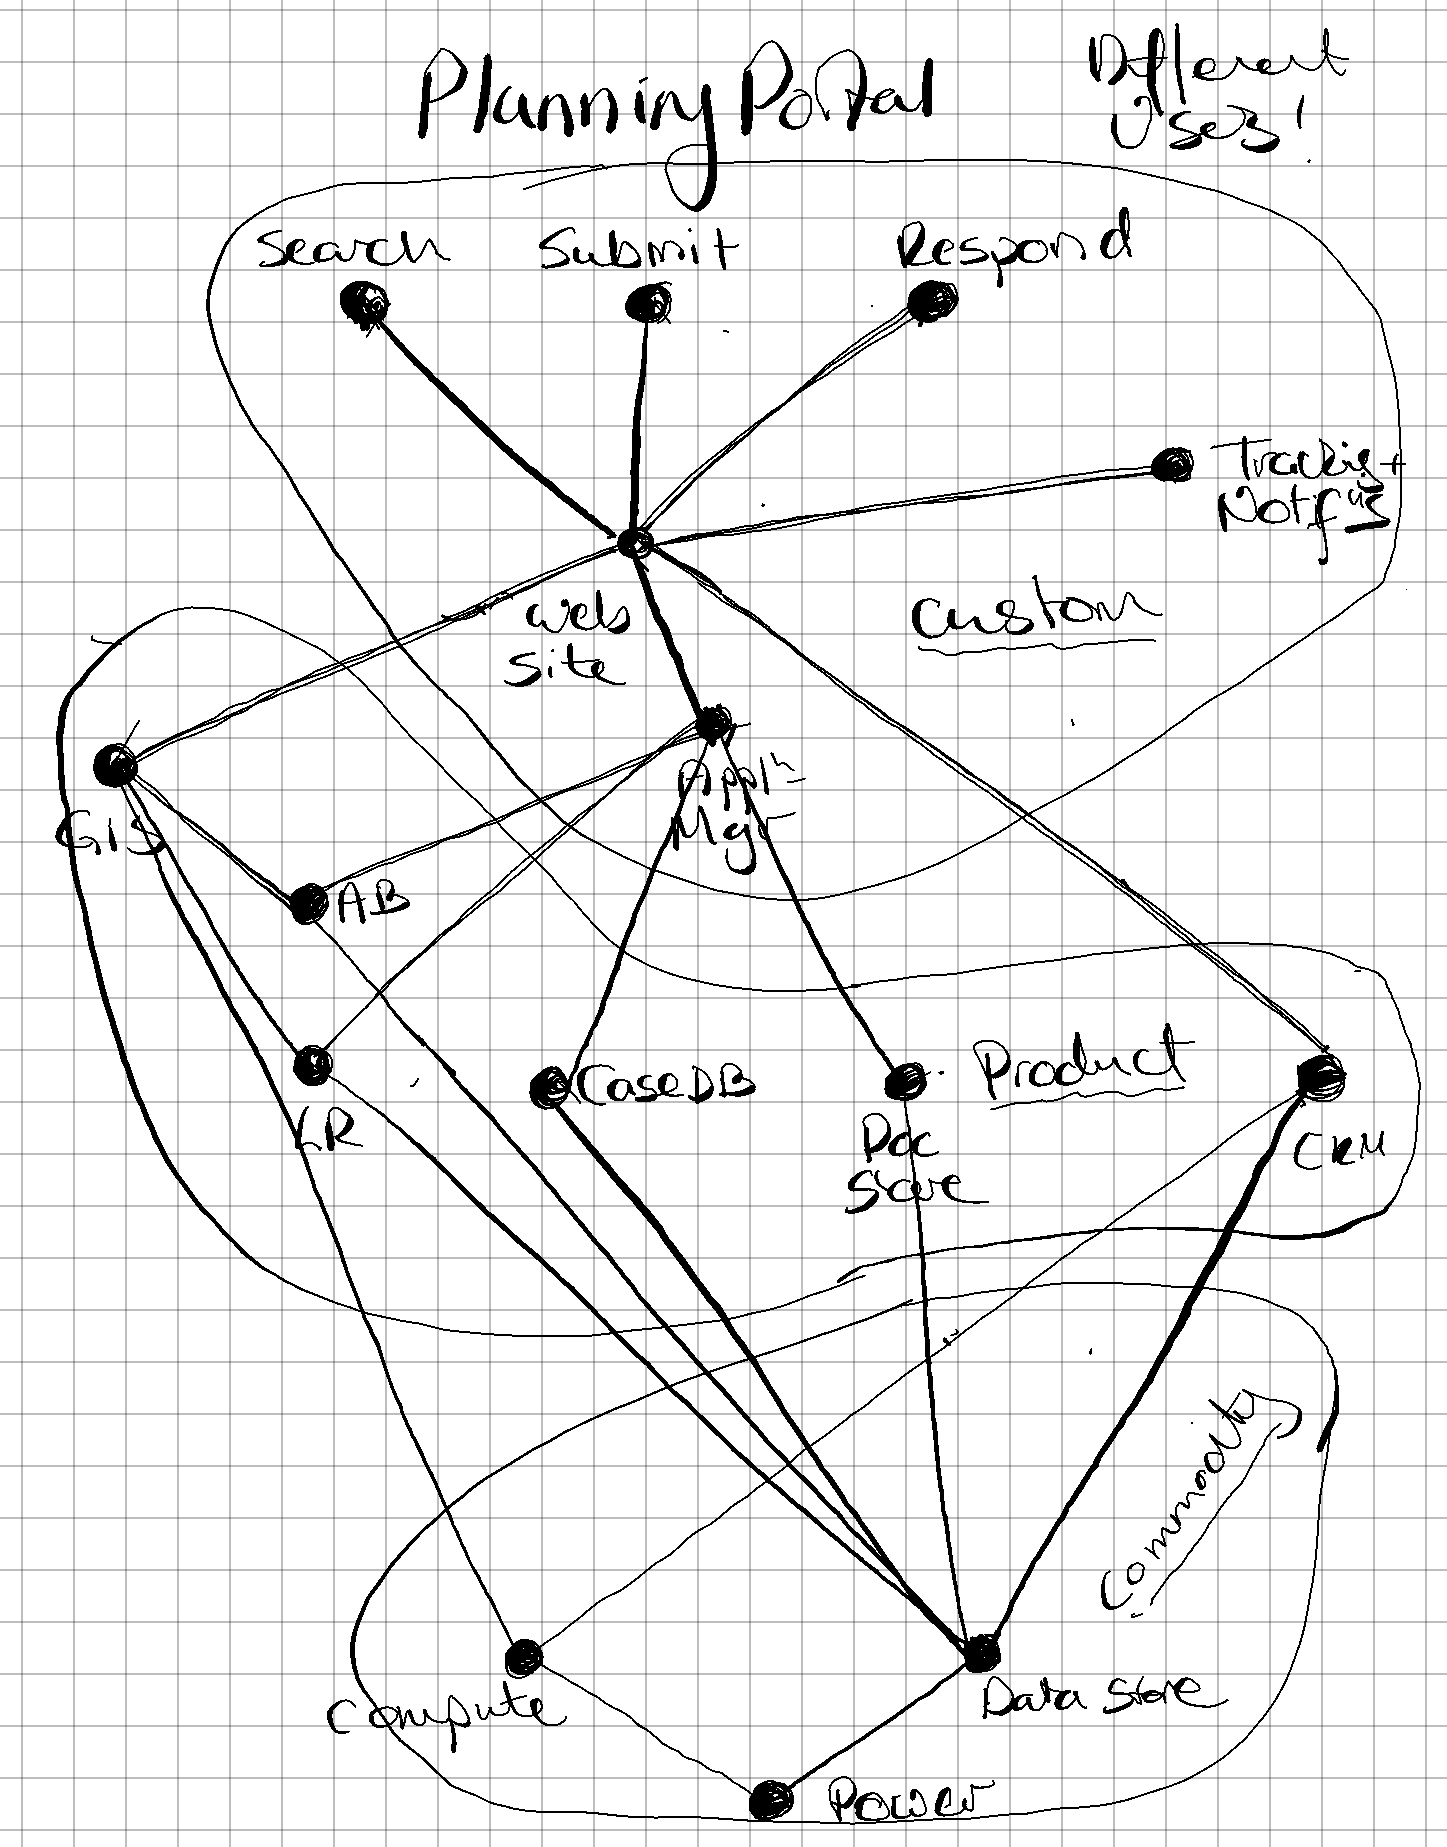 Planning Portal
Different
Users!
Search
Submit
Respond
Tracking +
Notf'ns
Web
Site
Custom
Appl'n
Mgr
GIS
AB
LR
CaseDB
Doc
Store
Product
CRM
Commodity
Compute
Data Store
Power